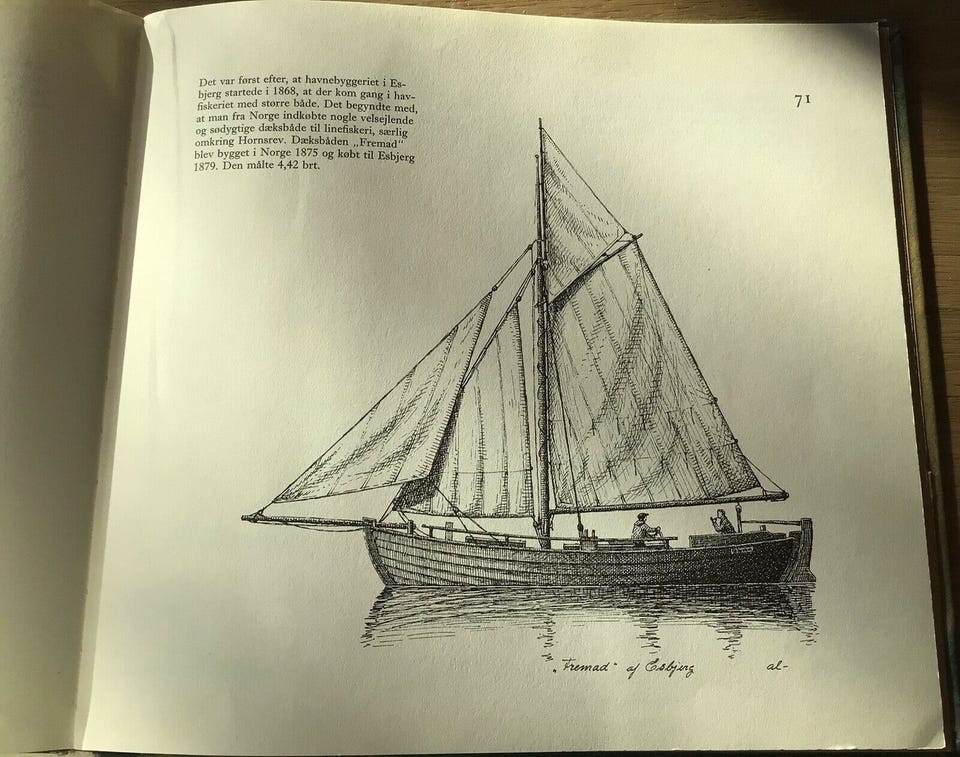 Det var først efter, at havnebyggeriet i Es-
bjerg startede i 1868, at der kom gang i hav-
fiskeriet med større både. Det begyndte med,
at man fra Norge indkøbte nogle velsejlende
og sødygtige dæksbåde til linefiskeri, særlig
omkring Hornsrev. Dæksbåden „Fremad“
blev bygget i Norge 1875 og købt til Esbjerg
1879. Den målte 4,42 brt.
71
„Fremad“ af Esbjerg
al-